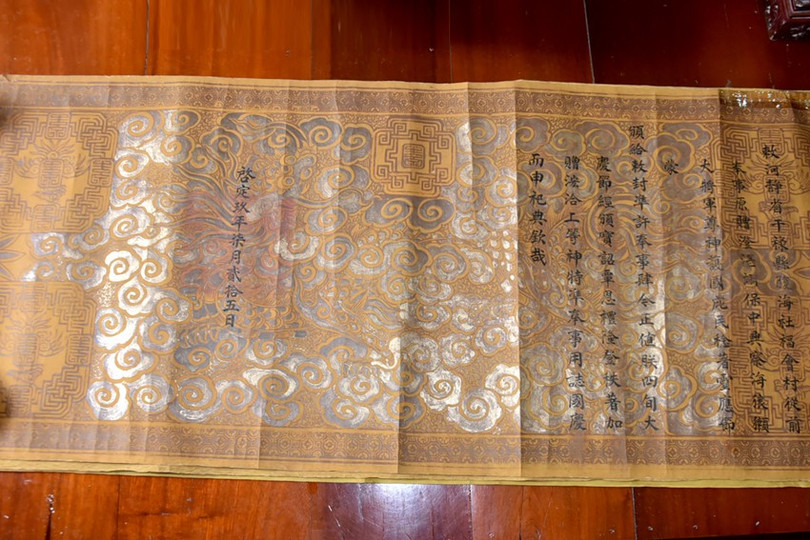 敕河靜省干祿縣海社福會村從前
奉事原贈澄湛翊保中興察海獺
大將軍尊神護國庇民稔著靈應節
蒙
頒給敕封準許奉事肆今正值朕四旬大
慶節經頒寶詔覃恩禮隆登秩著加
贈滂洽上等神特準奉事用誌國慶
而申祀典欽哉
啓定玖年柒月貳拾五日